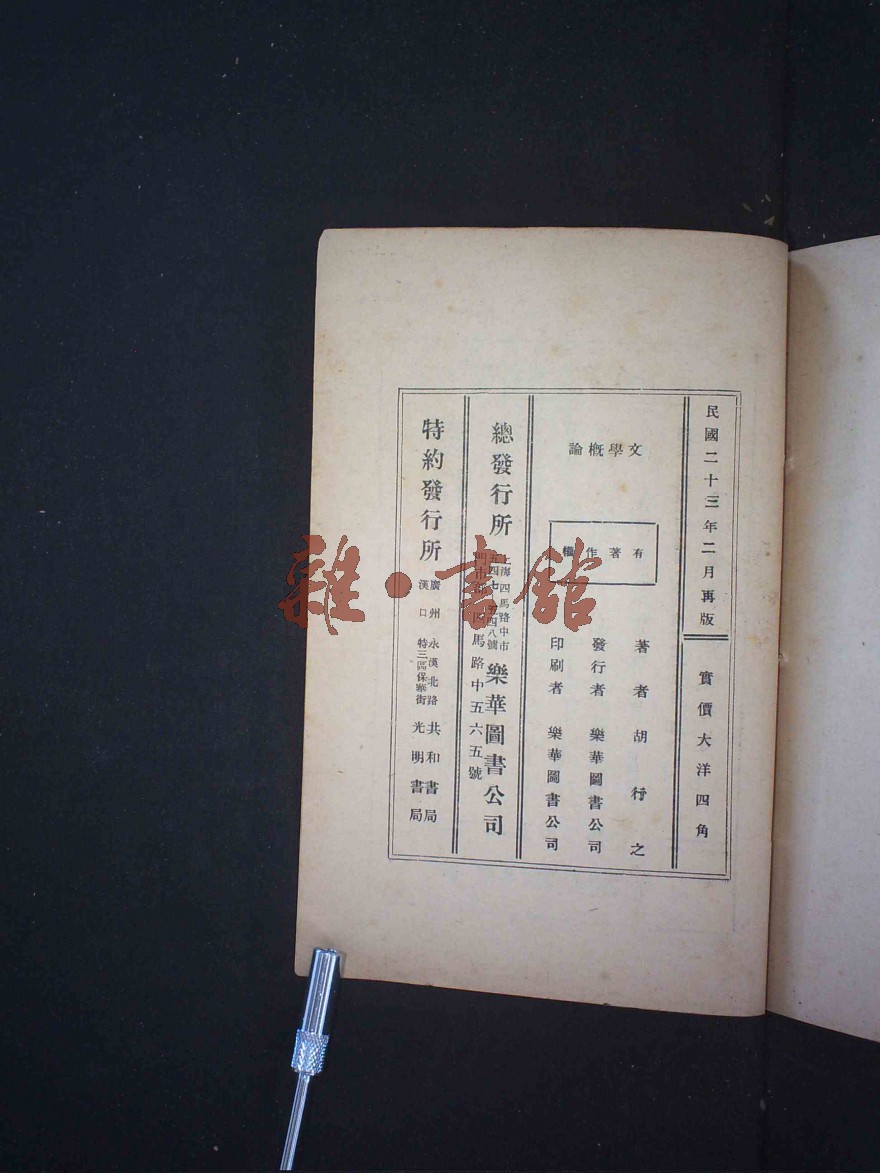 民國二十三年二月再版
實價大洋四角
文學概論
有著作權
著者胡行之
發行者 樂華圖書公司
印刷者 樂華圖書公司
總發行所
上海四馬路中市
五四七 五四八號
樂華圖書公司
門市部 四馬路中五六五號
特約發行所
廣州 永漢北路 共和書局
漢口 特三區保華街 光明書局
雜·書館